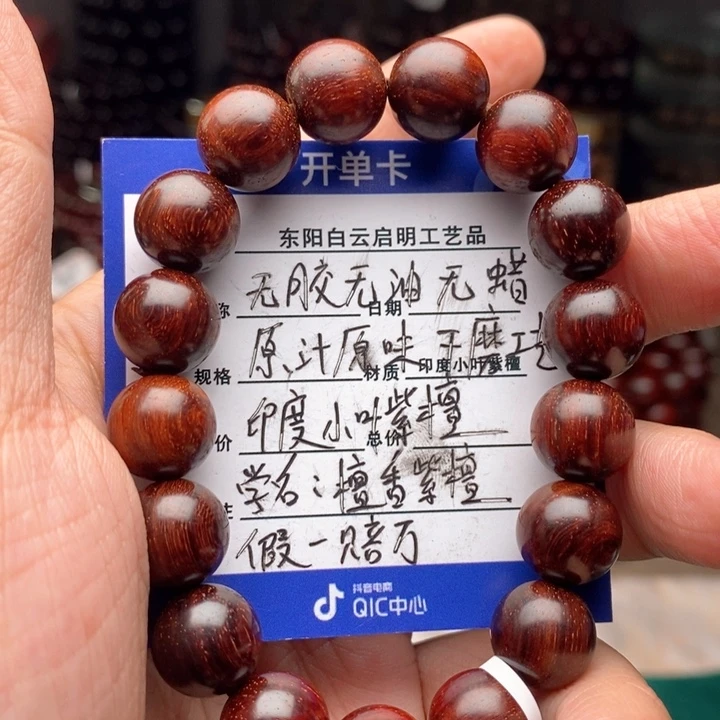 开单卡
东阳白云启明工艺品
无胶无油无蜡
称 日期
原汁原味干磨工艺
规格 材质 印度小叶紫檀
印度小叶紫檀
价 总价
学名：檀香紫檀
注
假一赔万
抖音电商
QIC中心